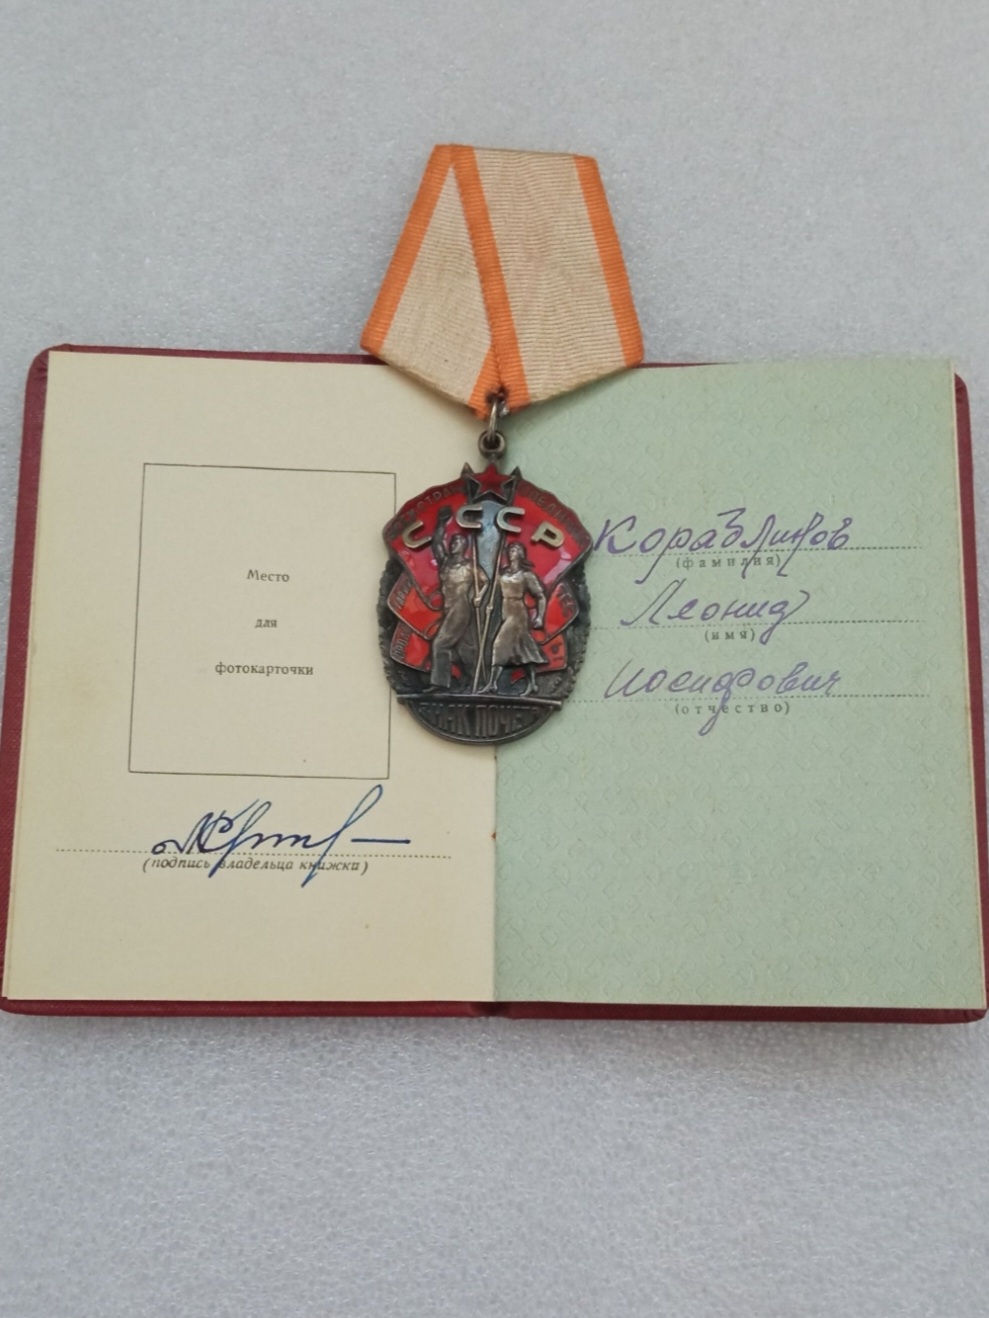 СССР
ЗНАК ПОЧЕТА
Место
для
фотокарточки
(подпись владельца книжки)
Кораблинов
(фамилия)
Леонид
(имя)
Иосифович
(отчество)